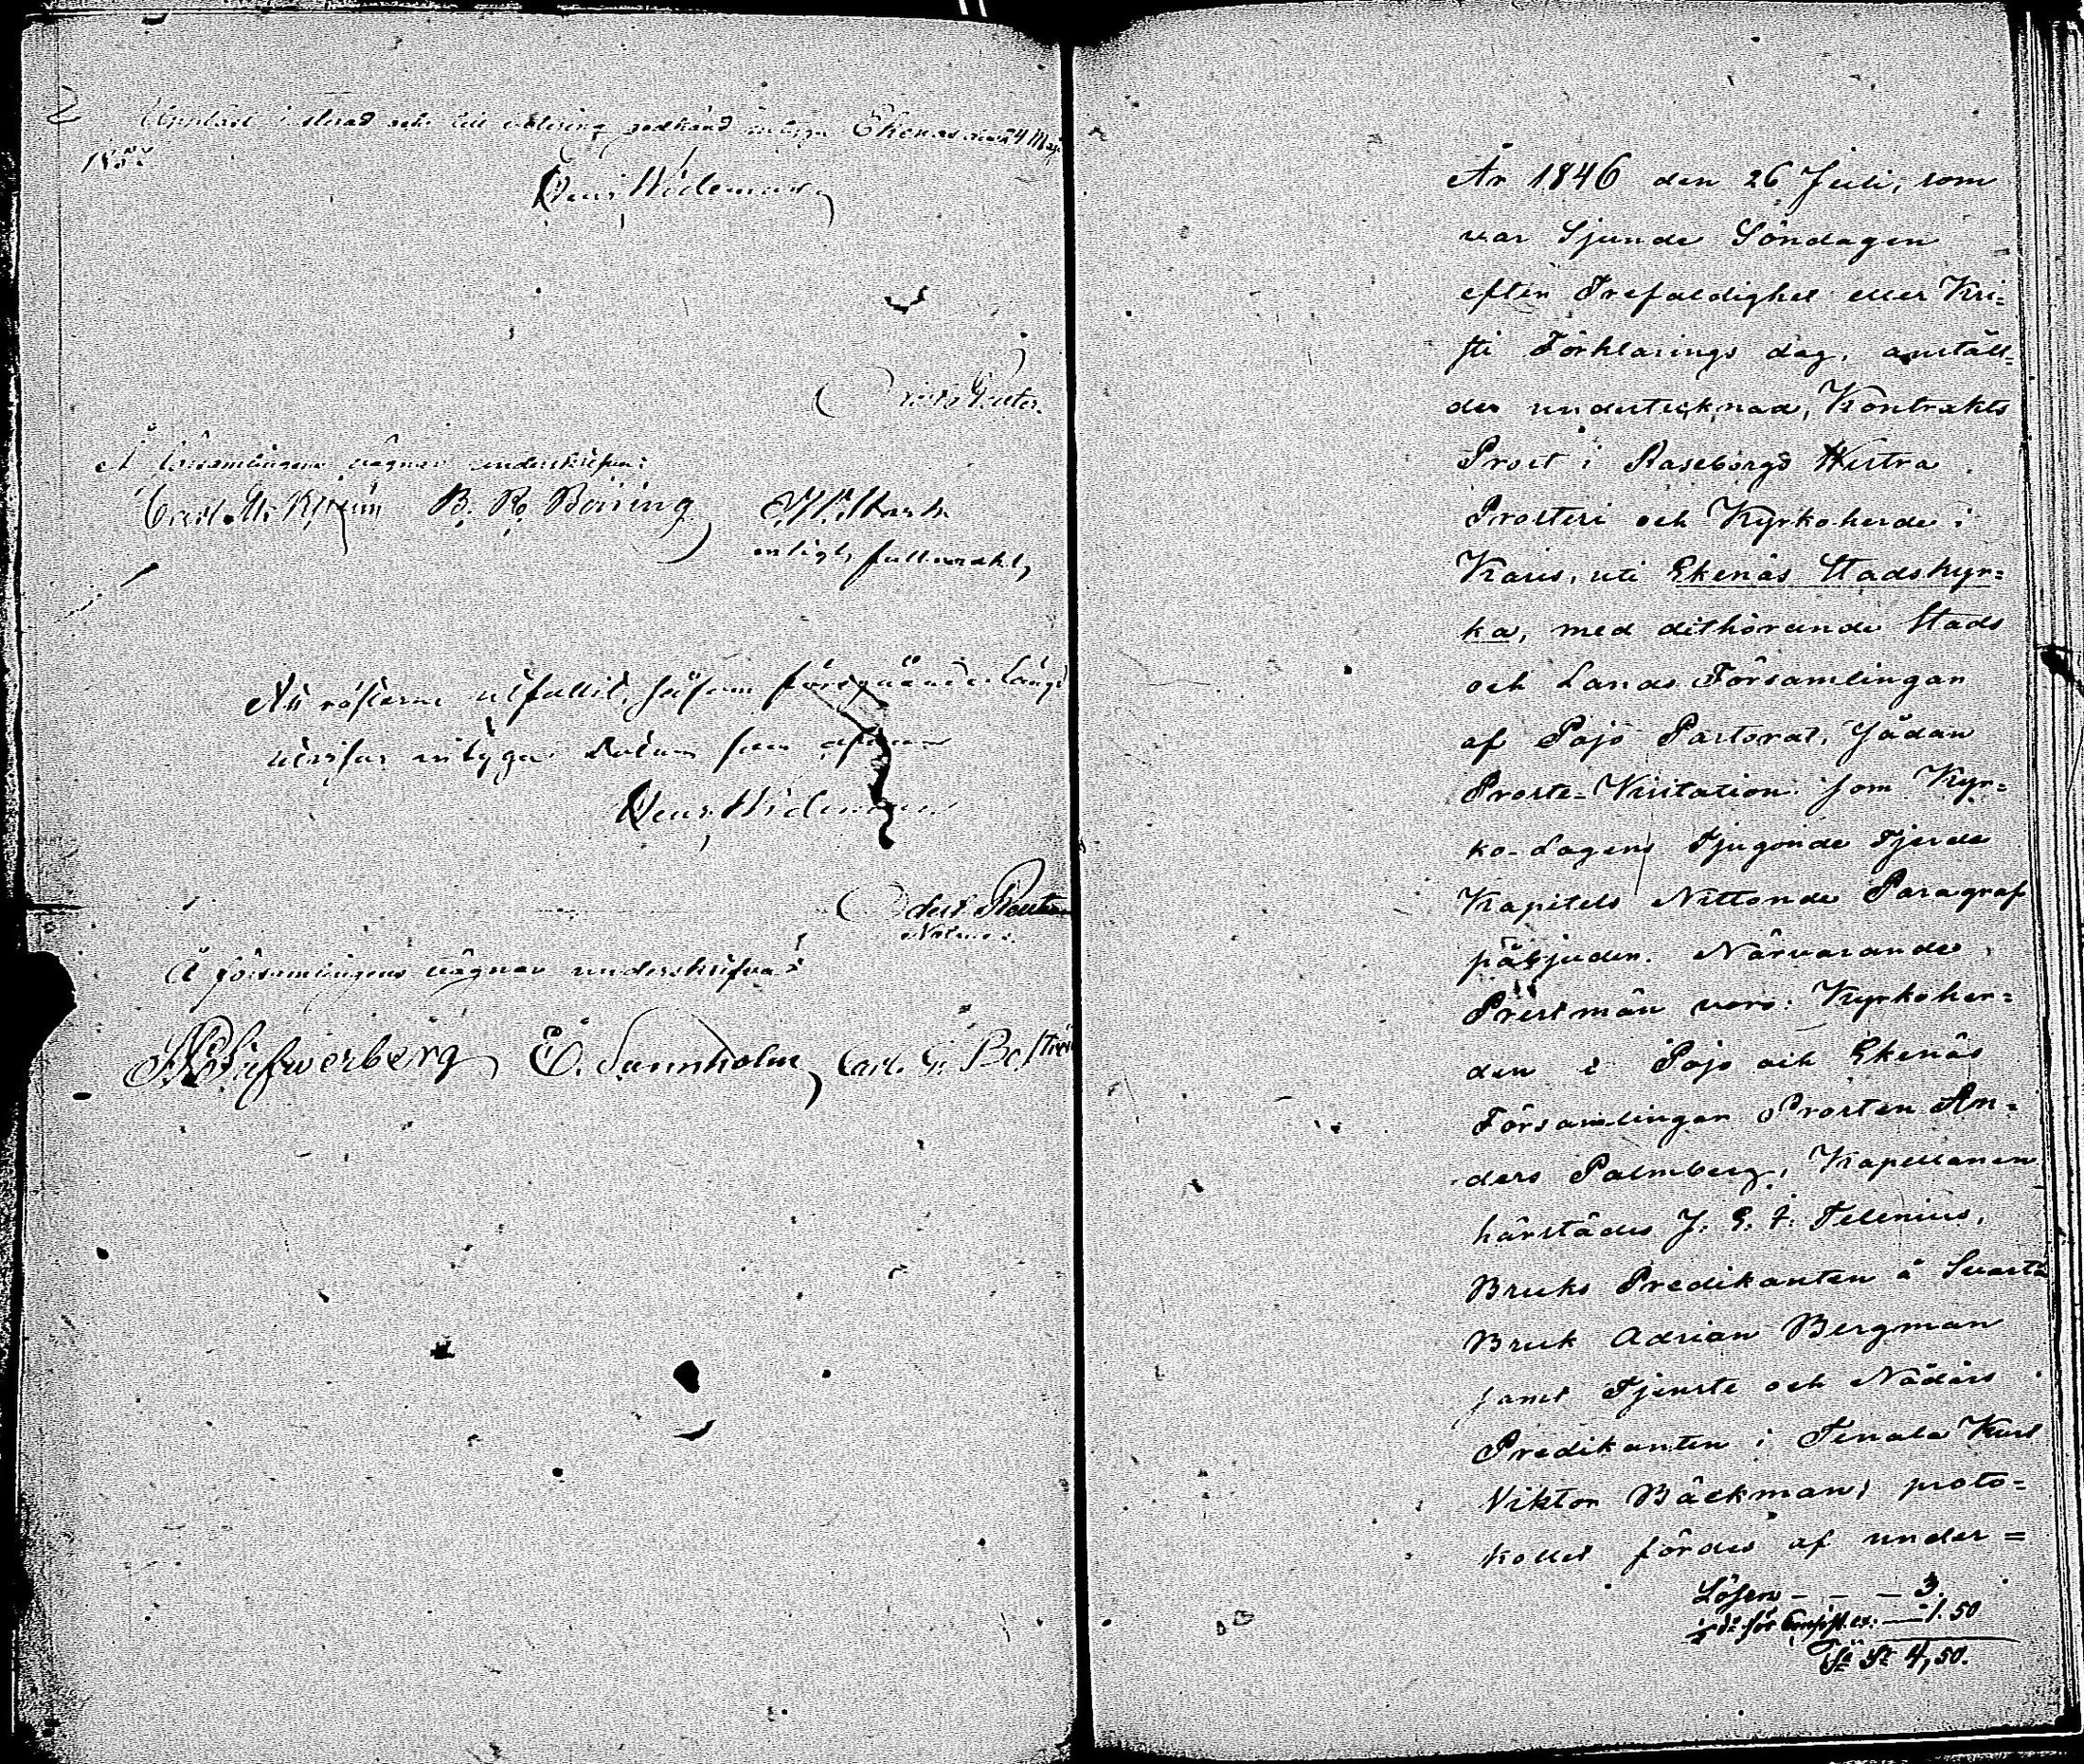 Uppläst, justerad och till ... godkänd intyga Ekenäs den 24 Maj
Henr Wideman
Reuter.
Å församlingens vägnar underskrifva:
B. R. Böning
enligt fullmakt,
Att rösterna utfallit, såsom föregående längd
utvisar intygar Datum som ofvan
Henr. Wideman
Reuter
Å församlingens vägnar underskrifva:
E. Sannholm, Carl G. Boström
År 1846 den 26 Juli, som
var Sjunde Söndagen
efter Trefaldighet eller Kri=
sti Förklarings dag, anställ=
des undertecknad, Kontrakts
Prost i Raseborgs Westra
Prosteri och Kyrkoherde i
Karis, uti Ekenäs Stadskyr=
ka, med dithörande Stads
och Lands Församlingar
af Pojo Pastorat, Sådan
Proste-Visitation som Kyr=
ko-Lagens Tjugonde Fjerde
Kapitels Nittonde Paragraf
påbjuder. Närvarande
Prestmän voro: Kyrkoher=
den i Pojo och Ekenäs
Församlingar Prosten An=
ders Palmberg, Kapellanen
härstädes J. E. F. Telenius,
Bruks Predikanten å Svartå
Bruk Adrian Bergman
samt Tjenste och Nådårs
Predikanten i Tenala Karl
Viktor Bäckman; proto=
kollet fördes af under=
Lösen - - - 3.
1.50
4,50.